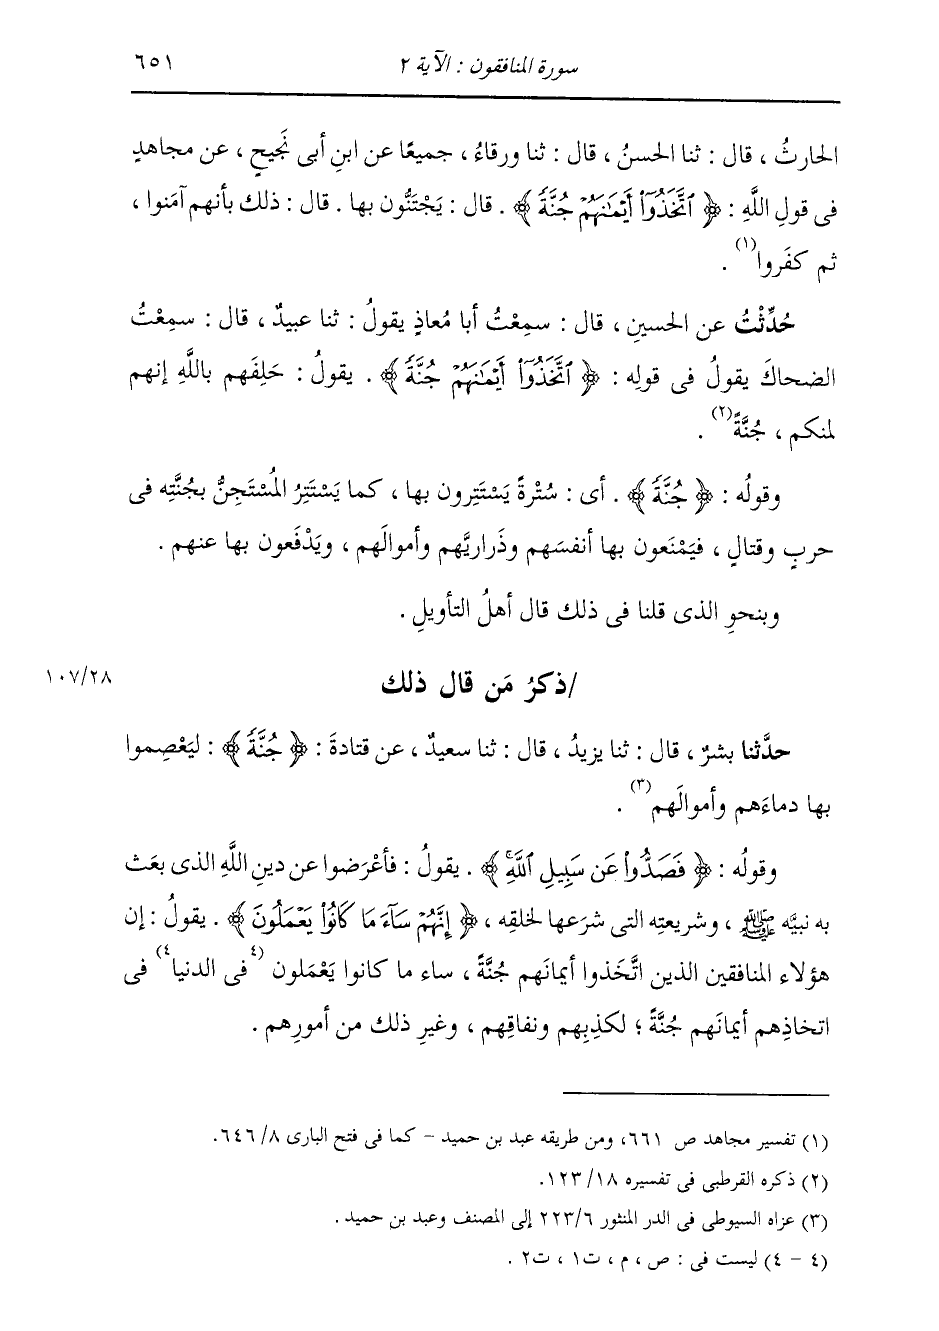 سورة المنافقون : الآية ٢
٦٥١
الحارثُ ، قال : ثنا الحسنُ ، قال : ثنا ورقاءُ ، جميعًا عن ابنِ أبى نَجيحٍ ، عن مجاهدٍ
فى قولِ اللَّهِ : ﴿ ٱتَّخَذُوٓا۟ أَيْمَٰنَهُمْ جُنَّةً ﴾ . قال : يَجْتَنُّون بها . قال : ذلك بأنهم آمَنوا ،
ثم كفَروا(١) .
حُدِّثْتُ عن الحسينِ ، قال : سمِعْتُ أبا مُعاذٍ يقولُ : ثنا عبيدٌ ، قال : سمِعْتُ
الضحاكَ يقولُ فى قولِه : ﴿ ٱتَّخَذُوٓا۟ أَيْمَٰنَهُمْ جُنَّةً ﴾ . يقولُ : حَلِفَهم باللَّهِ إنهم
لمنكم ، جُنَّةً(٢) .
وقولُه : ﴿ جُنَّةً ﴾ . أى : سُتْرةً يَسْتَتِرون بها ، كما يَسْتَتِرُ المُسْتَجِنُّ بجُنَّتِه فى
حربٍ وقتالٍ ، فيَمْنَعون بها أنفسَهم وذَراريَّهم وأموالَهم ، ويَدْفَعون بها عنهم .
وبنحوِ الذى قلنا فى ذلك قال أهلُ التأويلِ .
/ذكرُ مَن قال ذلك
١٠٧/٢٨
حدَّثنا بشرٌ ، قال : ثنا يزيدُ ، قال : ثنا سعيدٌ ، عن قتادةَ : ﴿ جُنَّةً ﴾ : ليَعْصِموا
بها دماءَهم وأموالَهم(٣) .
وقولُه : ﴿ فَصَدُّوا۟ عَن سَبِيلِ ٱللَّهِ ﴾ . يقولُ : فأعْرَضوا عن دينِ اللَّهِ الذى بعَث
به نبيَّه ﷺ ، وشريعتِه التى شرَعها لخلقِه ، ﴿ إِنَّهُمْ سَآءَ مَا كَانُوا۟ يَعْمَلُونَ ﴾ . يقولُ : إن
هؤلاء المنافقين الذين اتَّخَذوا أيمانَهم جُنَّةً ، ساء ما كانوا يَعْمَلون (٤فى الدنيا٤) فى
اتخاذِهم أيمانَهم جُنَّةً ؛ لكذِبِهم ونفاقِهم ، وغيرِ ذلك من أمورِهم .
(١) تفسير مجاهد ص ٦٦١، ومن طريقه عبد بن حميد – كما فى فتح البارى ٨/ ٦٤٦.
(٢) ذكره القرطبى فى تفسيره ١٨/ ١٢٣.
(٣) عزاه السيوطى فى الدر المنثور ٢٢٣/٦ إلى المصنف وعبد بن حميد .
(٤ – ٤) ليست فى : ص ، م ، ت١ ، ت٢ .